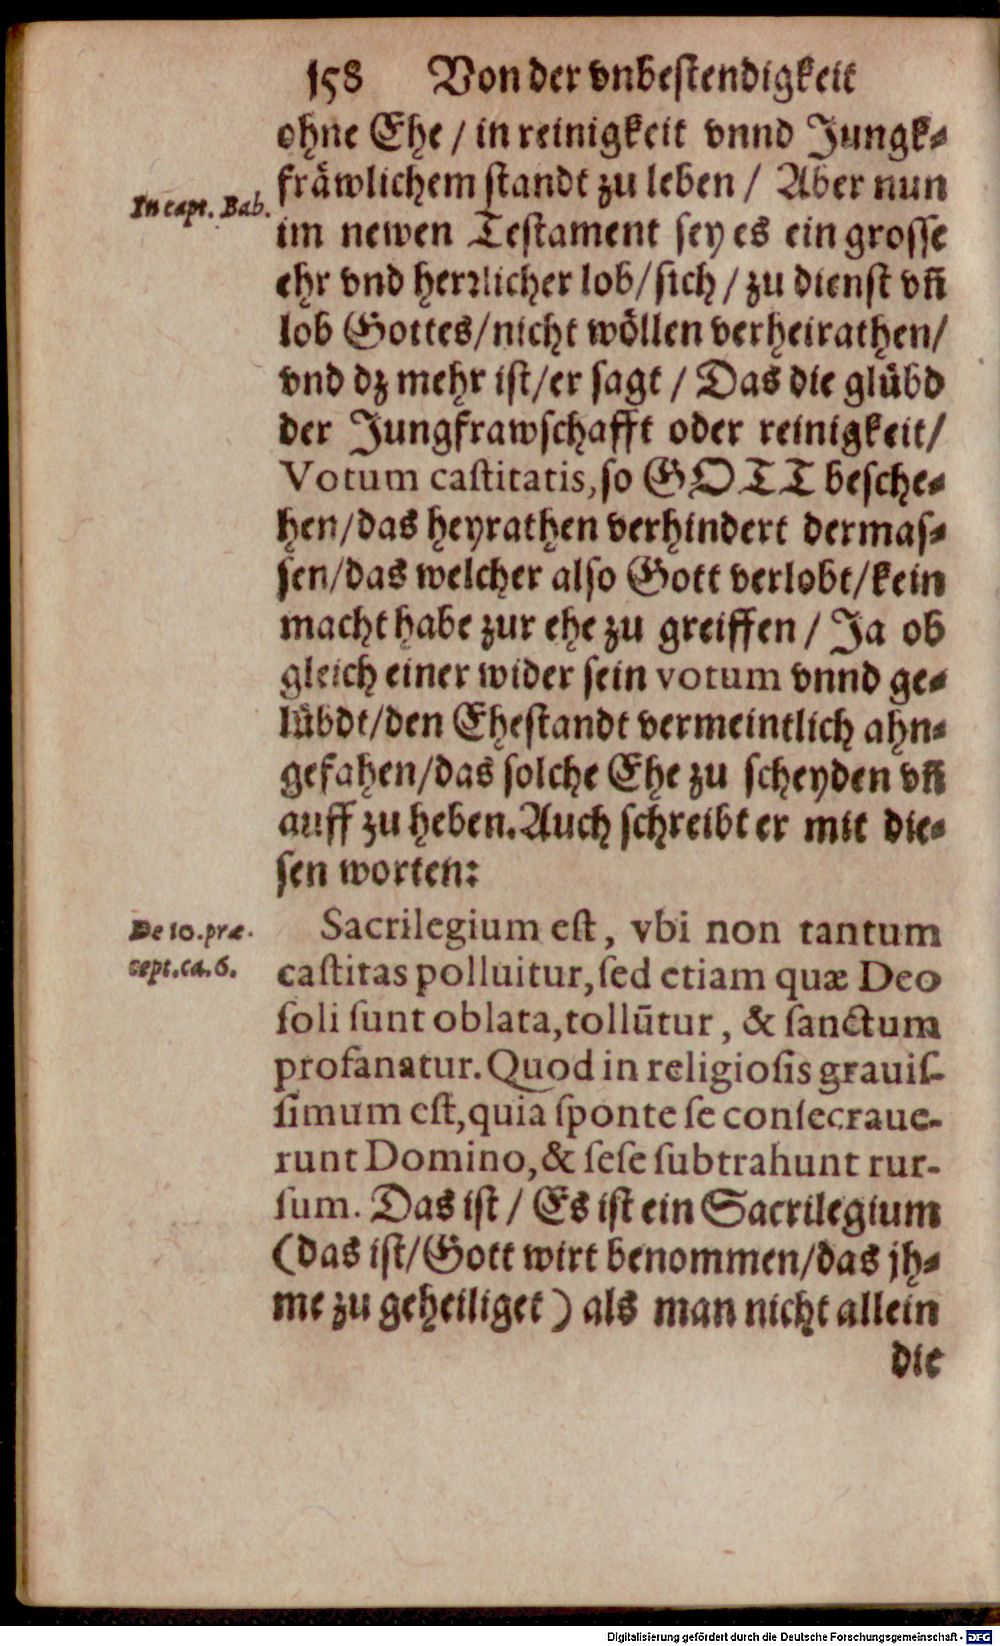 158 Von der vnbestendigkeit
ohne Ehe / in reinigkeit vnnd Jungk⸗
fräwlichem standt zu leben / Aber nun
In capt. Bab.
im newen Testament sey es ein grosse
ehr vnd herrlicher lob/sich / zu dienst vñ
lob Gottes/nicht wöllen verheirathen/
vnd dz mehr ist/er sagt / Das die glübd
der Jungfrawschafft oder reinigkeit/
Votum castitatis, so GOTT besche⸗
hen/das heyrathen verhindert dermas⸗
sen/das welcher also Gott verlobt/kein
macht habe zur ehe zu greiffen / Ja ob
gleich einer wider sein votum vnnd ge⸗
lübdt/den Ehestandt vermeintlich ahn⸗
gefahen/das solche Ehe zu scheyden vñ
auff zu heben. Auch schreibt er mit die⸗
sen worten:
De 10. præ-
cept. ca. 6.
Sacrilegium est, vbi non tantum
castitas polluitur, sed etiam quæ Deo
soli sunt oblata, tollūtur, & sanctum
profanatur. Quod in religiosis grauis-
simum est, quia sponte se consecraue-
runt Domino, & sese subtrahunt rur-
sum. Das ist / Es ist ein Sacrilegium
(das ist/Gott wirt benommen/das jh⸗
me zu geheiliget) als man nicht allein
die
Digitalisierung gefördert durch die Deutsche Forschungsgemeinschaft - DFG